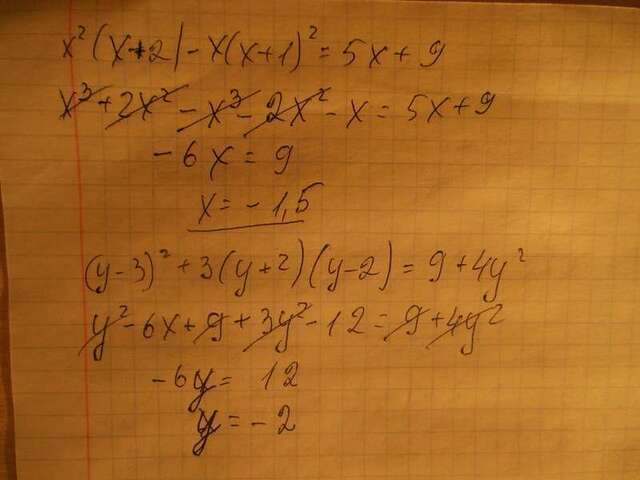 x²(x+2)-x(x+1)²=5x+9
x³+2x²-x³-2x²-x=5x+9
-6x=9
x=-1,5
(y-3)²+3(y+2)(y-2)=9+4y²
y²-6x+9+3y²-12=9+4y²
-6y=12
y=-2